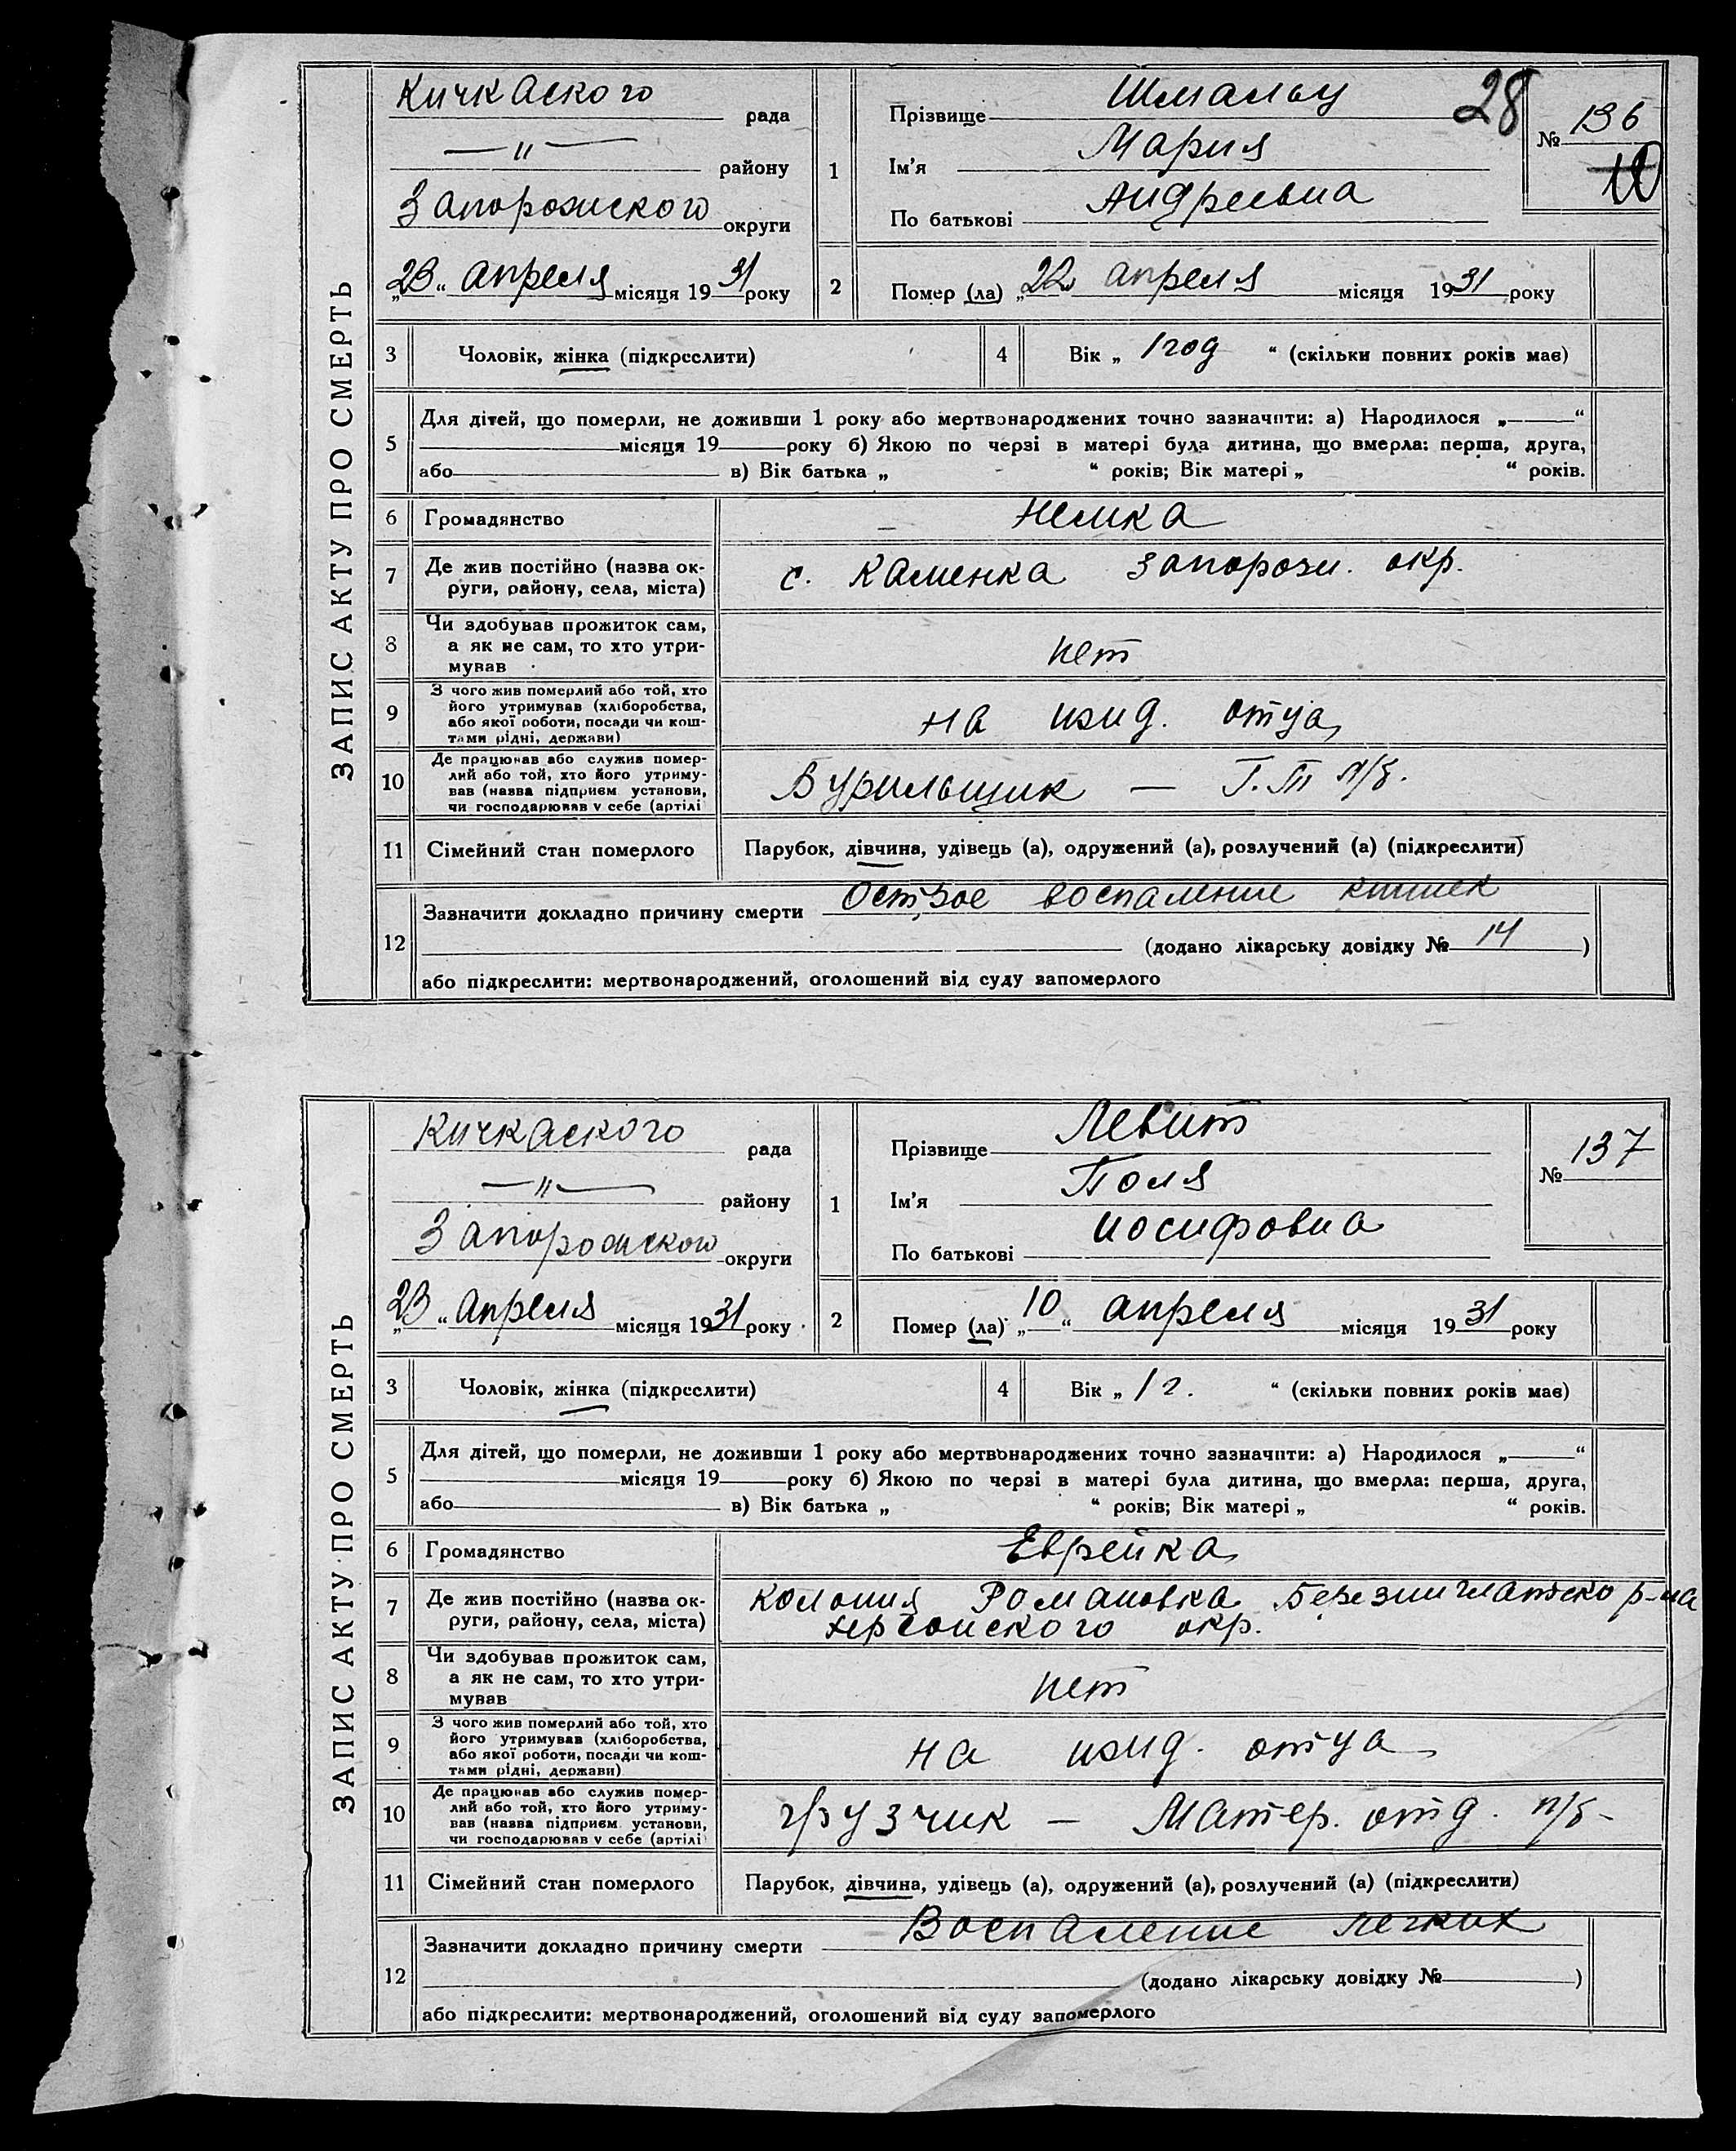 ЗАПИС АКТУ ПРО СМЕРТЬ
Кичкаского рада
—"— району
Запорожского округи
„23“ апреля місяця 1931 року
1
Прізвище Шмальц
Ім'я Мария
По батькові Андреевна
28
№ 136
2
Помер (ла) „22 апреля місяця 1931 року
3 Чоловік, жінка (підкреслити)
4 Вік „ 1 год “ (скільки повних років має)
5
Для дітей, що померли, не доживши 1 року або мертвонароджених точно зазначити: а) Народилося „——“
місяця 19 року б) Якою по черзі в матері була дитина, що вмерла: перша, друга,
або в) Вік батька „ “ років; Вік матері „ “ років.
6 Громадянство Немка
7 Де жив постійно (назва ок-
руги, району, села, міста)
с. Каменка Запорож. окр.
8 Чи здобував прожиток сам,
а як не сам, то хто утри-
мував
нет
9 З чого жив померлий або той, хто
його утримував (хліборобства,
або якої роботи, посади чи кош-
тами рідні, держави)
на ижд. отца
10 Де працював або служив помер-
лий або той, хто його утриму-
вав (назва підприєм установи,
чи господарював у себе (артілі
Бурильщик — Г.Т п/б.
11 Сімейний стан померлого Парубок, дівчина, удівець (а), одружений (а), розлучений (а) (підкреслити)
12
Зазначити докладно причину смерти Острое воспаление кишек
(додано лікарську довідку № 14 )
або підкреслити: мертвонароджений, оголошений від суду запомерлого
ЗАПИС АКТУ ПРО СМЕРТЬ
Кичкаского рада
—"— району
Запорожского округи
„23“ апреля місяця 1931 року
1
Прізвище Левит
Ім'я Поля
По батькові иосифовна
№ 137
2
Помер (ла) „10“ апреля місяця 1931 року
3 Чоловік, жінка (підкреслити)
4 Вік „ 1 г. “ (скільки повних років має)
5
Для дітей, що померли, не доживши 1 року або мертвонароджених точно зазначити: а) Народилося „——“
місяця 19 року б) Якою по черзі в матері була дитина, що вмерла: перша, друга,
або в) Вік батька „ “ років; Вік матері „ “ років.
6 Громадянство Еврейка
7 Де жив постійно (назва ок-
руги, району, села, міста)
колония Романовка р-на
херсонского окр.
8 Чи здобував прожиток сам,
а як не сам, то хто утри-
мував
нет
9 З чого жив померлий або той, хто
його утримував (хліборобства,
або якої роботи, посади чи кош-
тами рідні, держави)
на ижд. отца
10 Де працював або служив помер-
лий або той, хто його утриму-
вав (назва підприєм установи,
чи господарював у себе (артілі
грузчик — Матер. отд. п/б-
11 Сімейний стан померлого Парубок, дівчина, удівець (а), одружений (а), розлучений (а) (підкреслити)
12
Зазначити докладно причину смерти Воспаление легких
(додано лікарську довідку № )
або підкреслити: мертвонароджений, оголошений від суду запомерлого